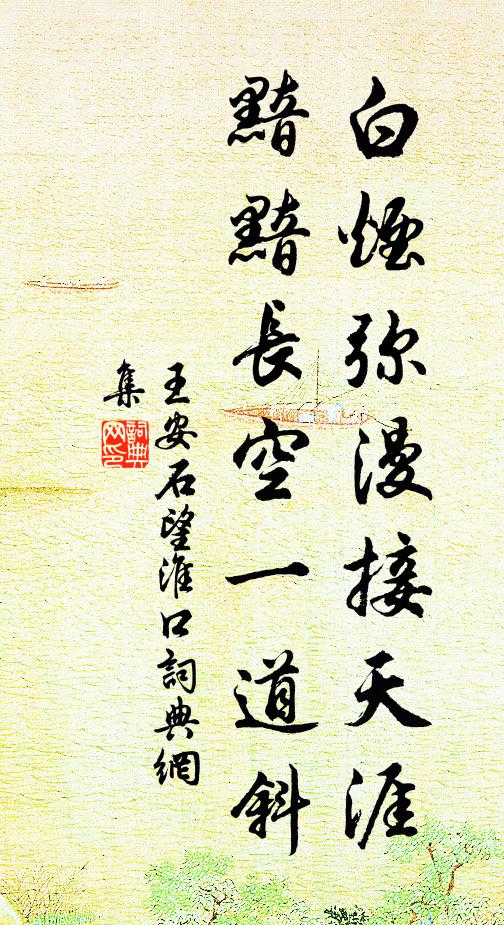 白煙弥漫接天涯
黯黯長空一道斜
王安石望淮口詞典網
集
詞典
网印